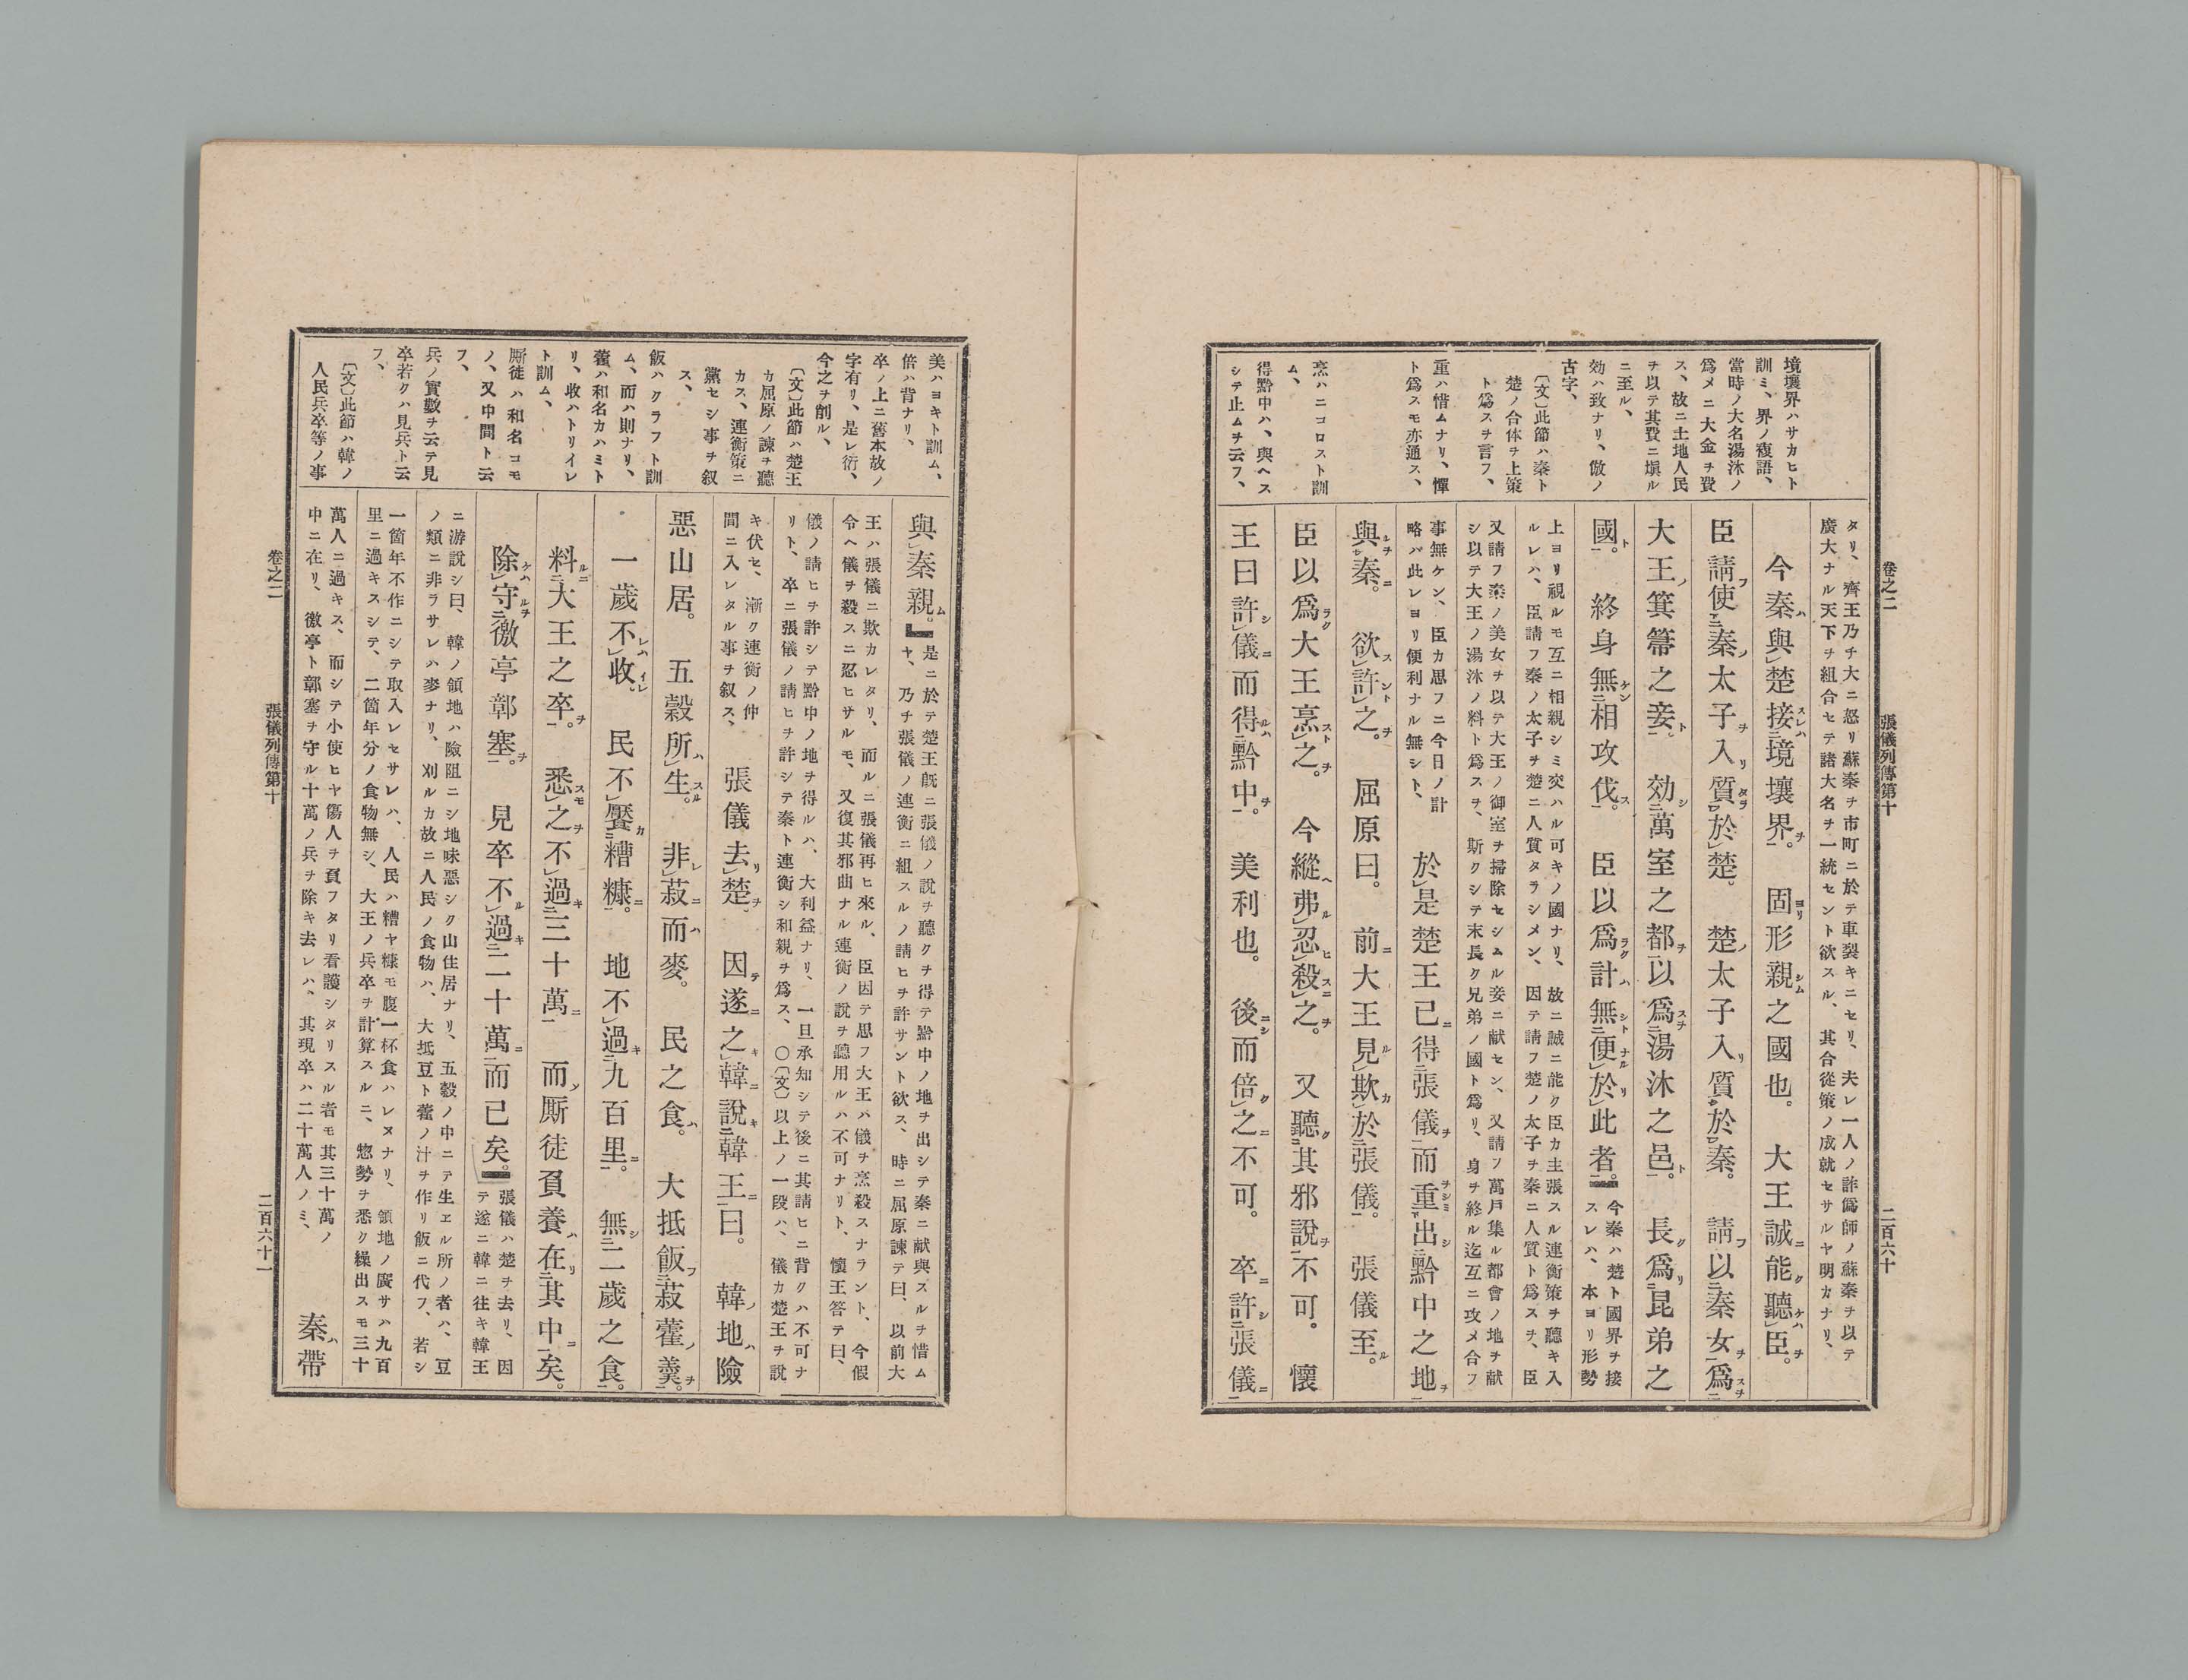 卷之二　張儀列傳第十　二百六十
境壤界ハサカヒト
訓ミ、界ノ複語、
當時ノ大名湯沐ノ
爲メニ大金ヲ費
ス、故ニ土地人民
ヲ以テ其費ニ塡ル
ニ至ル、
効ハ致ナリ、倣ノ
古字、
〔文〕此節ハ秦ト
楚ノ合体ヲ上策
ト爲スヲ言フ、
重ハ惜ムナリ、憚
ト爲スモ亦通ス、
烹ハニコロスト訓
ム、
得黔中ハ、與ヘス
シテ止ムヲ云フ、
タリ、齊王乃チ大ニ怒リ蘇秦ヲ市町ニ於テ車裂キニセリ、夫レ一人ノ詐僞師ノ蘇秦ヲ以テ
廣大ナル天下ヲ組合セテ諸大名ヲ一統セント欲スル、其合從策ノ成就セサルヤ明カナリ、
今秦與楚接境壤界。固形親之國也。大王誠能聽臣。
臣請使秦太子入質於楚。楚太子入質於秦。請以秦女爲
大王箕箒之妾。効萬室之都以爲湯沐之邑。長爲昆弟之
國。終身無相攻伐。臣以爲計無便於此者。
今秦ハ楚ト國界ヲ接
スレハ、本ヨリ形勢
上ヨリ視ルモ互ニ相親シミ交ハル可キノ國ナリ、故ニ誠ニ能ク臣カ主張スル連衡策ヲ聽キ入
ルレハ、臣請フ秦ノ太子ヲ楚ニ人質タラシメン、因テ請フ楚ノ太子ヲ秦ニ人質ト爲スヲ、臣
又請フ秦ノ美女ヲ以テ大王ノ御室ヲ掃除セシムル妾ニ献セン、又請フ萬戸集ル都會ノ地ヲ献
シ以テ大王ノ湯沐ノ料ト爲スヲ、斯クシテ末長ク兄弟ノ國ト爲リ、身ヲ終ル迄互ニ攻メ合フ
事無ケン、臣カ思フニ今日ノ計
略バ此レヨリ便利ナル無シト、
於是楚王已得張儀而重出黔中之地
與秦。欲許之。屈原曰。前大王見欺於張儀。張儀至。
臣以爲大王烹之。今縱弗忍殺之。又聽其邪說不可。懷
王曰許儀而得黔中。美利也。後而倍之不可。卒許張儀
美ハヨキト訓ム、
倍ハ背ナリ、
卒ノ上ニ舊本故ノ
字有リ、是レ衍、
今之ヲ削ル、
〔文〕此節ハ楚王
カ屈原ノ諫ヲ聽
カス、連衡策ニ
黨セシ事ヲ叙
ス、
飯ハクラフト訓
ム、而ハ則ナリ、
藿ハ和名カハミト
リ、收ハトリイレ
ト訓ム、
厮徒ハ和名コモ
ノ、又中間ト云
フ、
兵ノ實數ヲ云テ見
卒若クハ見兵ト云
フ、
〔文〕此節ハ韓ノ
人民兵卒等ノ事
與秦親。
是ニ於テ楚王旣ニ張儀ノ說ヲ聽クヲ得テ黔中ノ地ヲ出シテ秦ニ献與スルヲ惜ム
ヤ、乃チ張儀ノ連衡ニ組スルノ請ヒヲ許サント欲ス、時ニ屈原諫テ曰、以前大
王ハ張儀ニ欺カレタリ、而ルニ張儀再ヒ來ル、臣因テ思フ大王ハ儀ヲ烹殺スナラント、今假
令ヘ儀ヲ殺スニ忍ヒサルモ、又復其邪曲ナル連衡ノ說ヲ聽用ルハ不可ナリト、懷王答テ曰、
儀ノ請ヒヲ許シテ黔中ノ地ヲ得ルハ、大利益ナリ、一旦承知シテ後ニ其請ヒニ背クハ不可ナ
リト、卒ニ張儀ノ請ヒヲ許シテ秦ト連衡シ和親ヲ爲ス、〇〔文〕以上ノ一段ハ、儀カ楚王ヲ說
キ伏セ、漸ク連衡ノ仲
間ニ入レタル事ヲ叙ス、
張儀去楚。因遂之韓說韓王曰。韓地險
惡山居。五穀所生。非菽而麥。民之食。大抵飯菽藿羹。
一歲不收。民不饜糟糠。地不過九百里。無二歲之食。
料大王之卒。悉之不過三十萬。而厮徒負養在其中矣。
除守徼亭鄣塞。見卒不過二十萬而已矣。
張儀ハ楚ヲ去リ、因
テ遂ニ韓ニ往キ韓王
ニ游說シ曰、韓ノ領地ハ險阻ニシ地味惡シク山住居ナリ、五穀ノ中ニテ生エル所ノ者ハ、豆
ノ類ニ非ラサレハ麥ナリ、刈ルカ故ニ人民ノ食物ハ、大抵豆ト藿ノ汁ヲ作リ飯ニ代フ、若シ
一箇年不作ニシテ取入レセサレハ、人民ハ糟ヤ糠モ腹一杯食ハレヌナリ、領地ノ廣サハ九百
里ニ過キスシテ、二箇年分ノ食物無シ、大王ノ兵卒ヲ計算スルニ、惣勢ヲ悉ク繰出スモ三十
萬人ニ過キス、而シテ小使ヒヤ傷人ヲ負フタリ看護シタリスル者モ其三十萬ノ
中ニ在リ、徼亭ト鄣塞ヲ守ル十萬ノ兵ヲ除キ去レハ、其現卒ハ二十萬人ノミ、
秦帶
卷之二　張儀列傳第十　二百六十一